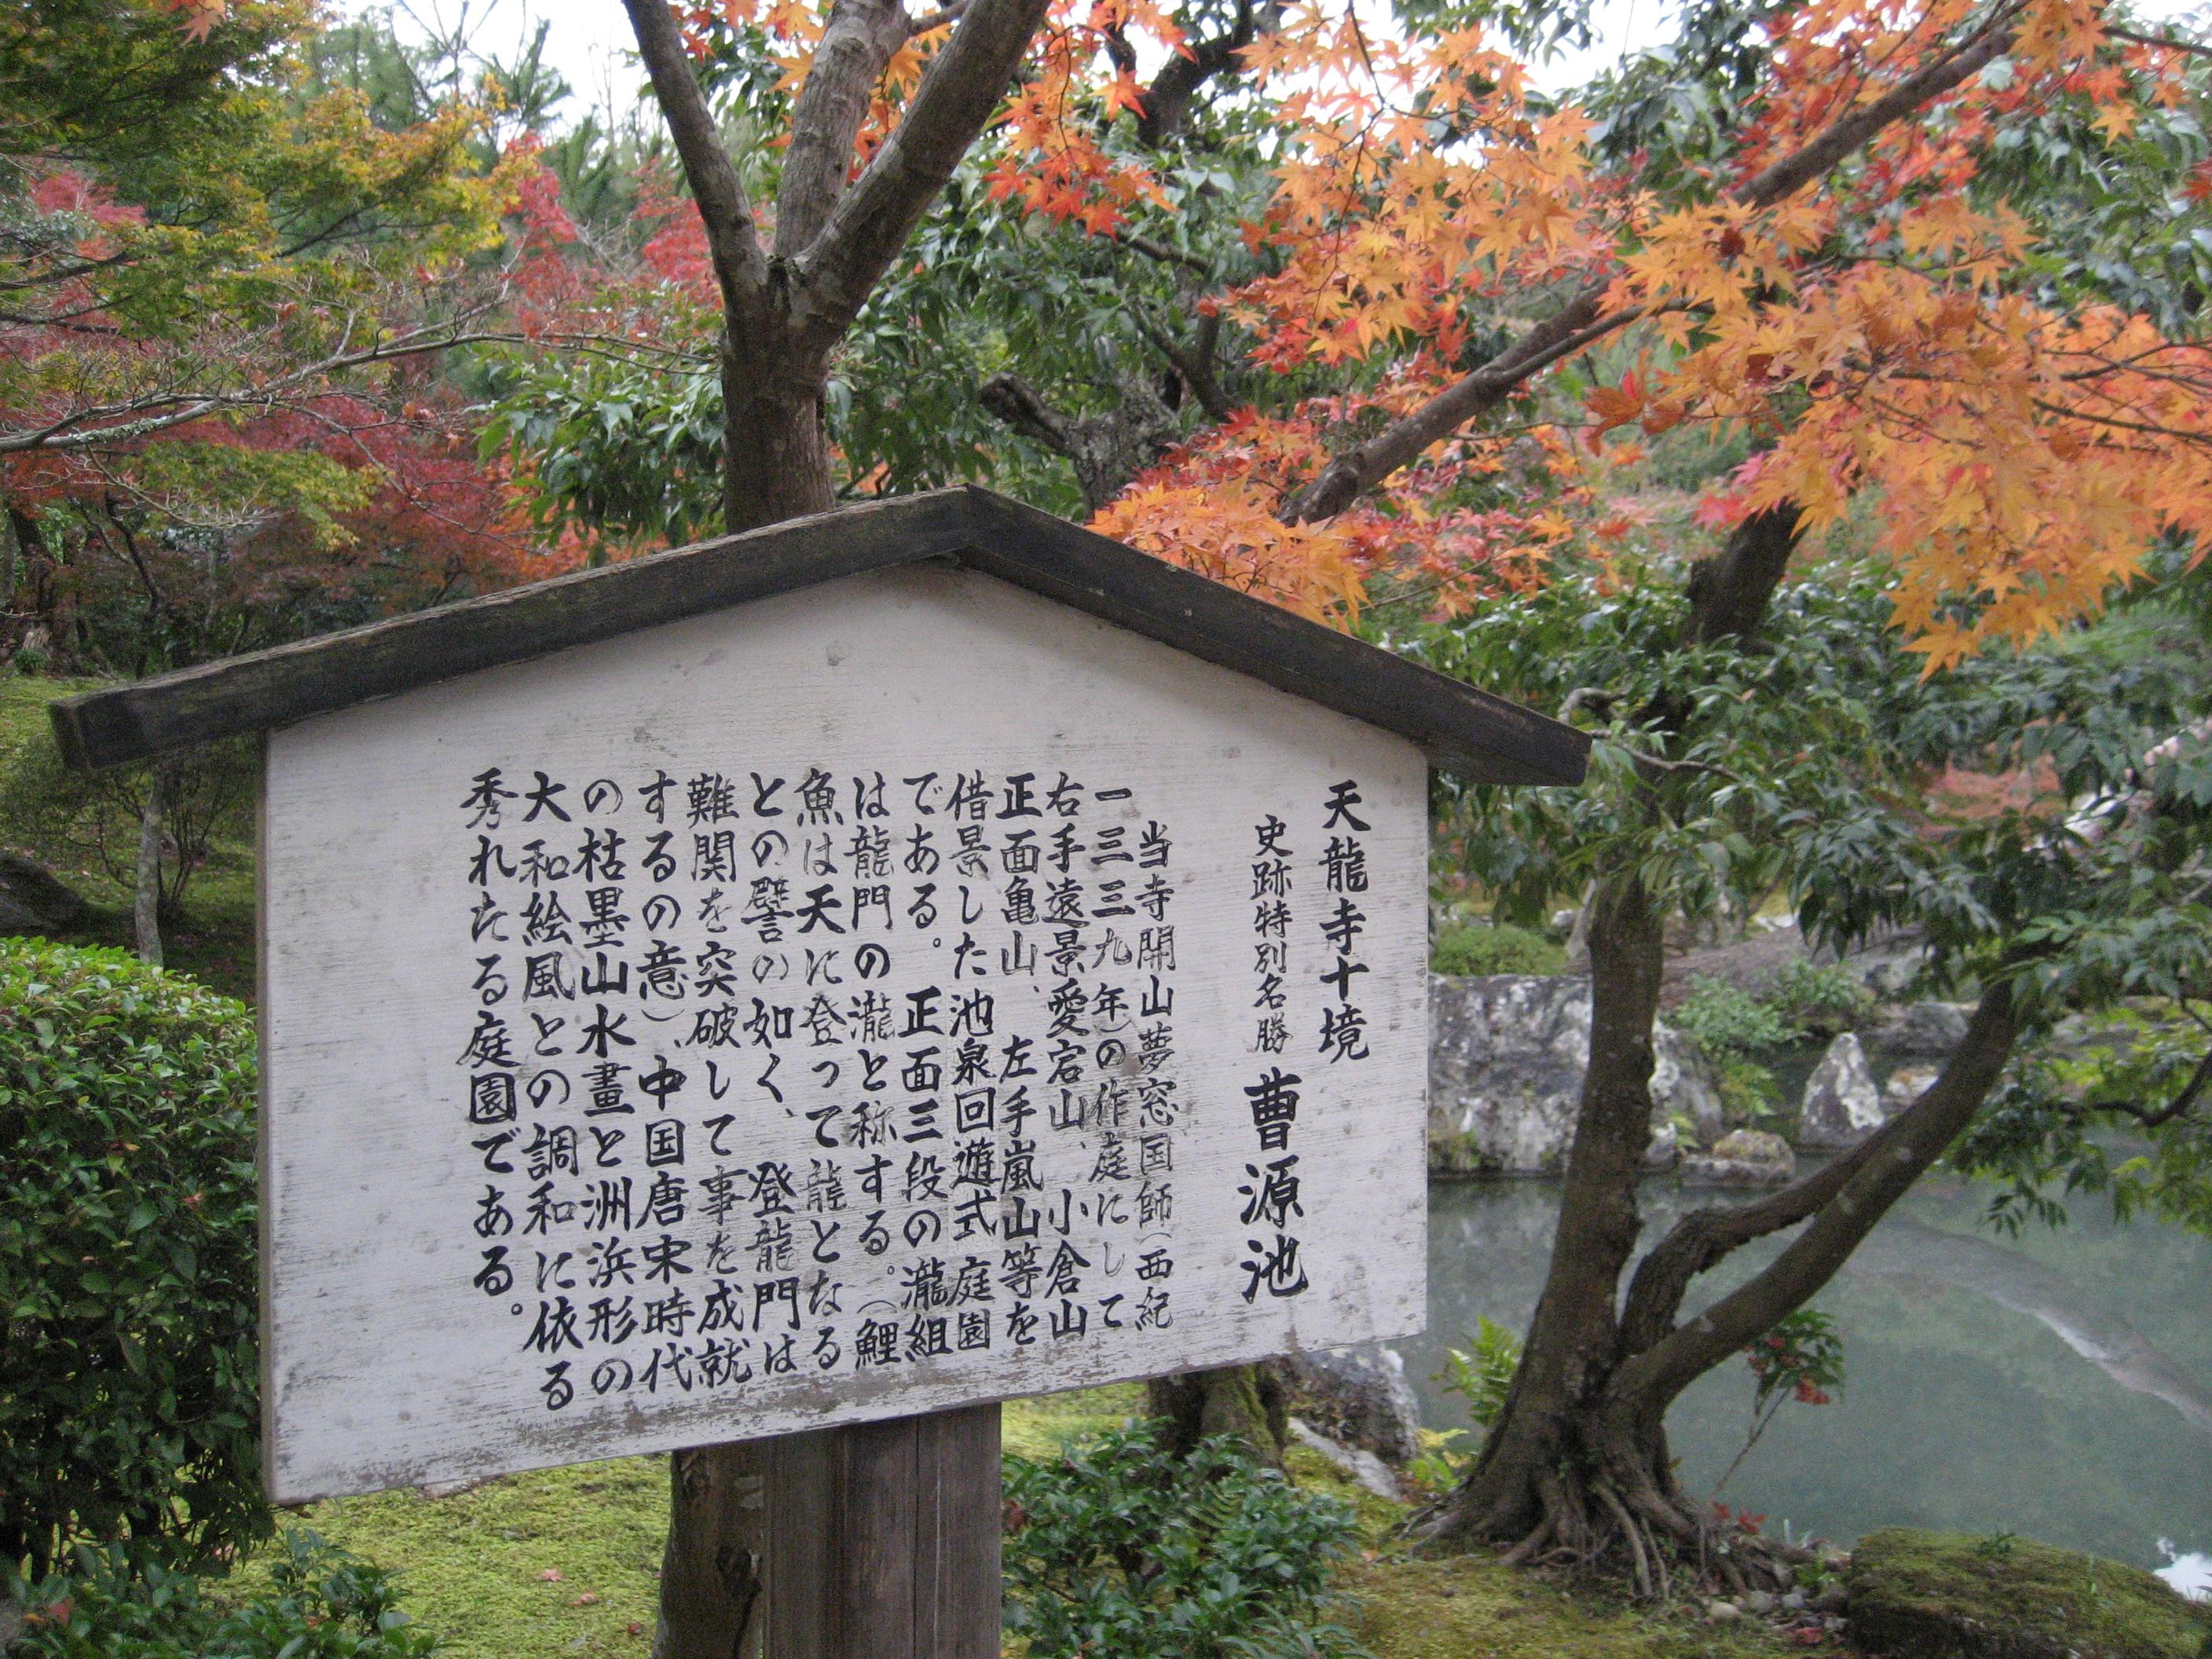 天龍寺十境
史跡特別名勝 曹源池
当寺開山夢窓国師(西紀
一三三九年)の作庭にして
右手遠景愛宕山、小倉山
正面亀山、左手嵐山等を
借景した池泉回遊式庭園
である。正面三段の瀧組
は龍門の瀧と称する。(鯉
魚は天に登って龍となる
との譬の如く、登龍門は
難関を突破して事を成就
するの意)、中国唐宋時代
の枯墨山水畫と洲浜形の
大和絵風との調和に依る
秀れたる庭園である。